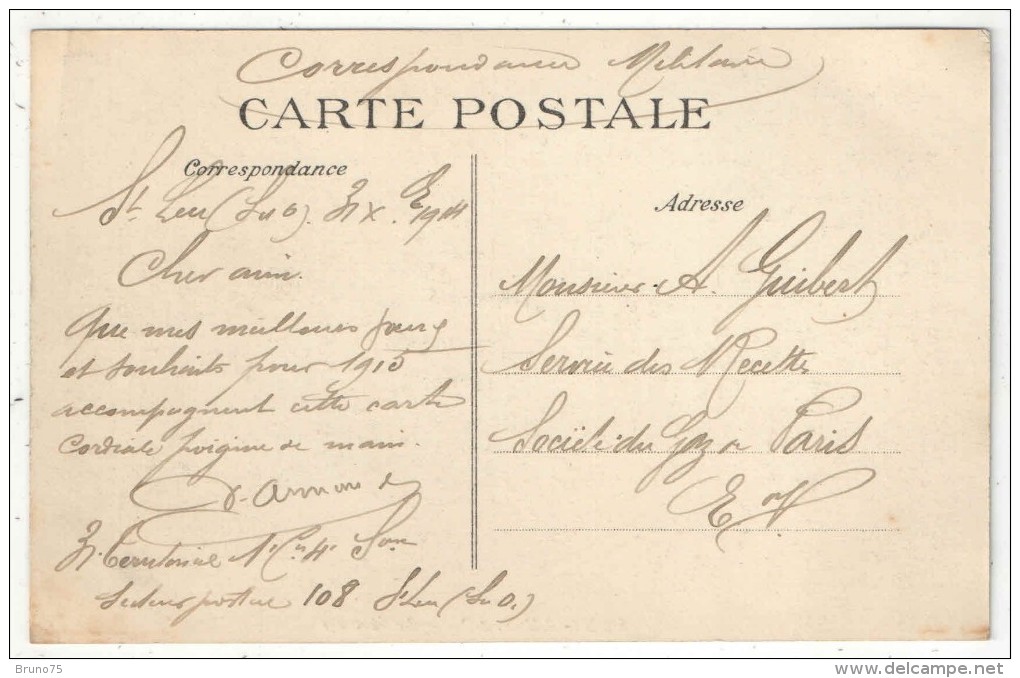 Correspondance Militaire
CARTE POSTALE
Correspondance
St Leu (S.u O). 31 X E 1914
Cher ami.
Que mes meilleures
et souhaits pour 1915
accompagnent cette carte
Cordiale poigne de main.
Armand
31. Territoriale 4e Son
Secteur postal 108 St Leu (S u O.)
Adresse
Monsieur A. Guibert
Service des Recettes
Société du Gaz a Paris
E V
Bruno75
www.delcampe.net